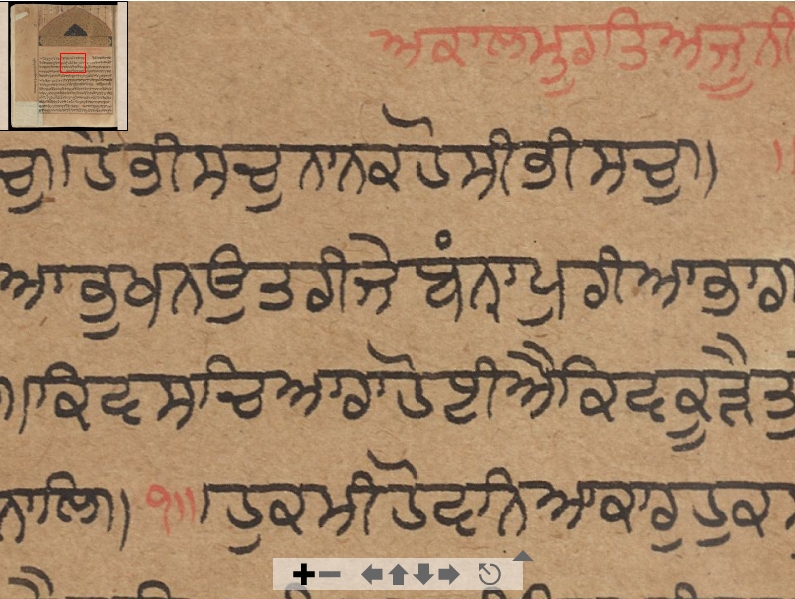 ਅਕਾਲਮੂਰਤਿਅਜੂਨੀ
ਚੁ॥ਹੈਭੀਸਚੁਨਾਨਕਹੋਸੀਭੀਸਚੁ॥ ॥
ਆਭੁਖਨਉਤਰੀਜੇਬੰਨਾਪੁਰੀਆਭਾਰ
॥ਕਿਵਸਚਿਆਰਾਹੋਈਐਕਿਵਕੂੜੈਤੁ
ਨਾਲਿ॥੧॥ਹੁਕਮੀਹੋਵਨਿਆਕਾਰੁਹੁਕਮ